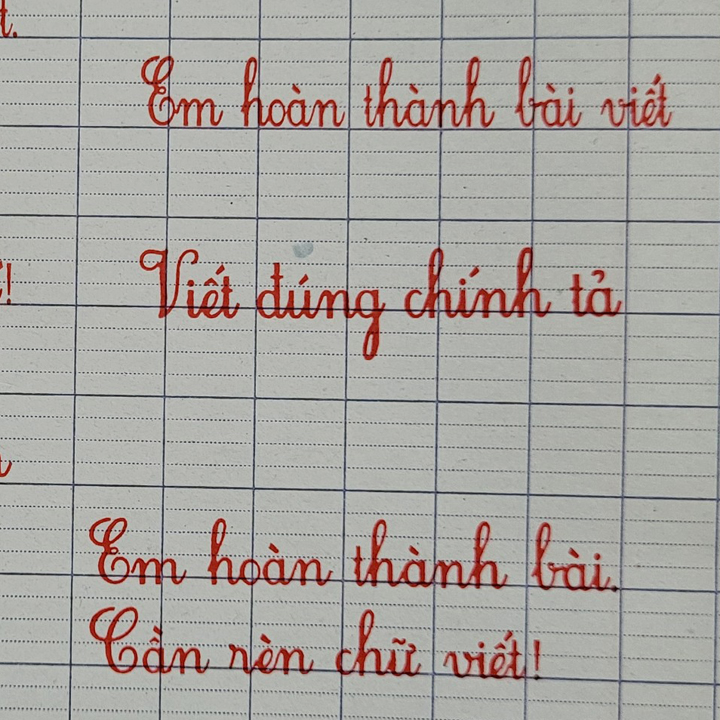 Em hoàn thành bài viết
Viết đúng chính tả
Em hoàn thành bài.
Cần rèn chữ viết!